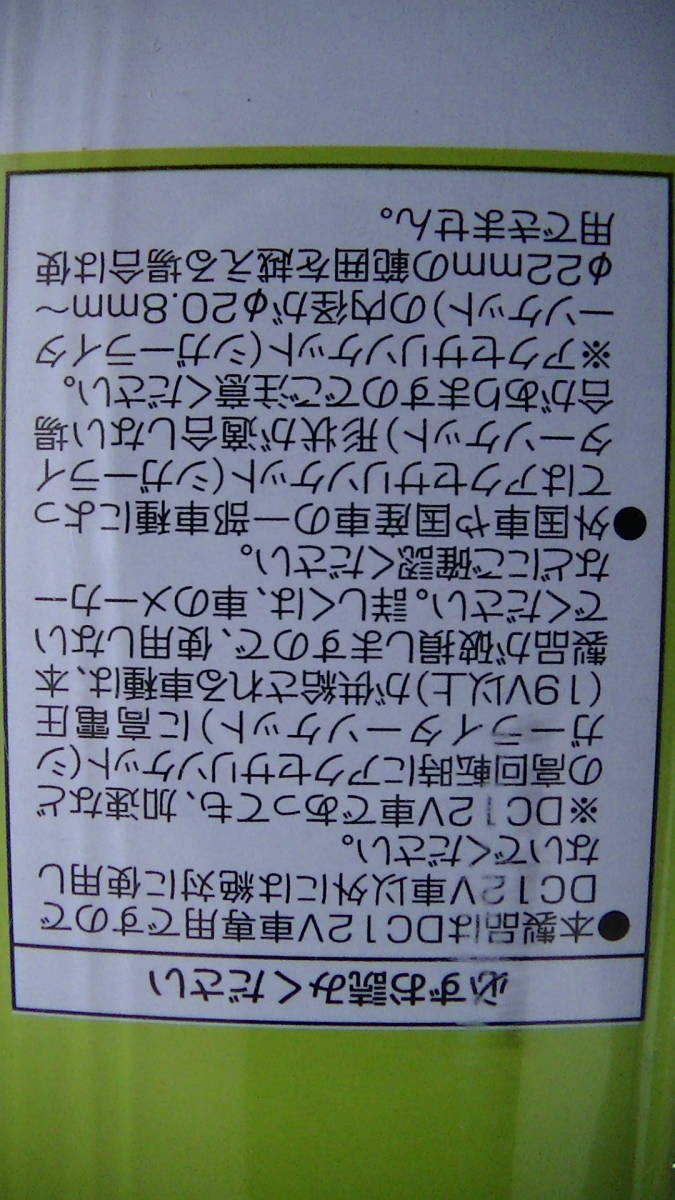 必ずお読みください
●本製品はDC12V車専用ですので
DC12V車以外には絶対に使用し
ないでください。
※DC12V車であっても、加速など
の高回転時にアクセサリソケット(シ
ガーライターソケット)に高電圧
(19V以上)が供給される車種は、本
製品が破損しますので、使用しない
でください。詳しくは、車のメーカー
などにご確認ください。
●外国車や国産車の一部車種によっ
てはアクセサリソケット(シガーライ
ターソケット)形状が適合しない場
合がありますのでご注意ください。
※アクセサリソケット(シガーライタ
ーソケット)の内径がφ20.8mm~
φ22mmの範囲を越える場合は使
用できません。